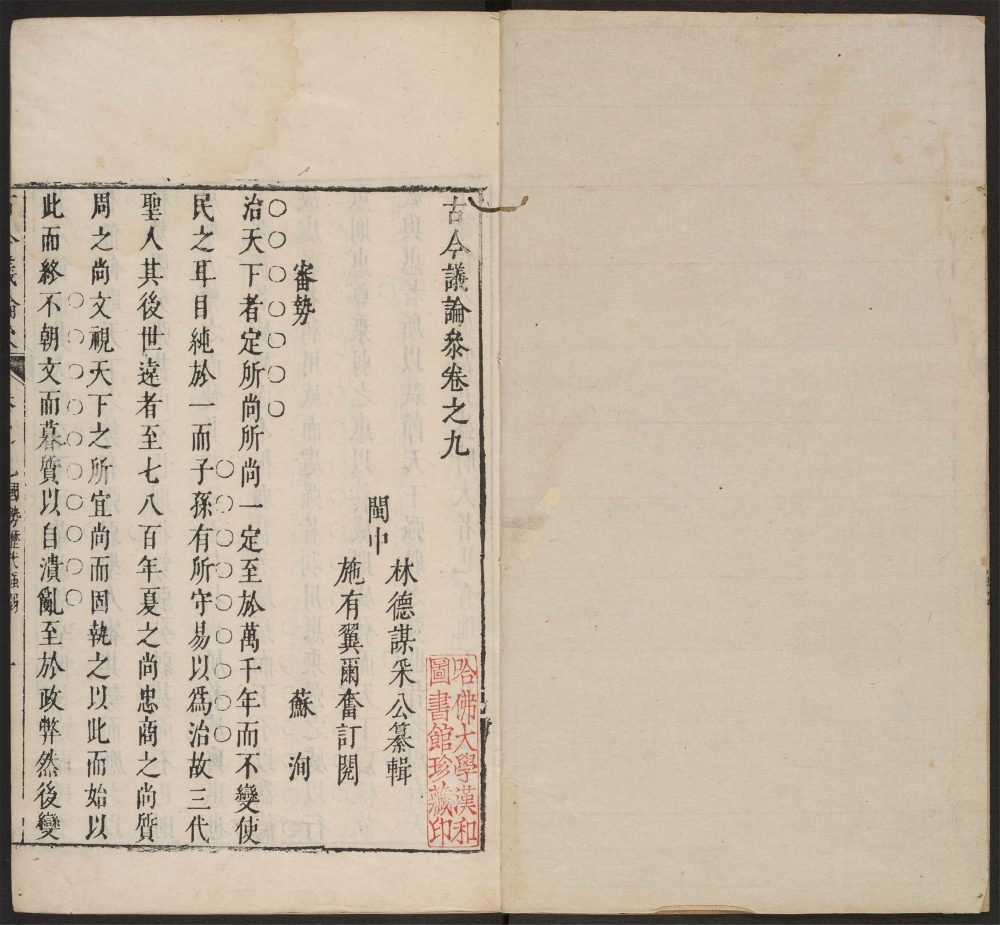 古今議論叅卷之九
閩中
林德謀釆公纂輯
施有翼爾奮訂閱
審勢
蘇洵
治天下者定所尚所尚一定至於萬千年而不變使
民之耳目純於一而子孫有所守易以爲治故三代
聖人其後世遠者至七八百年夏之尚忠商之尚質
周之尚文視天下之所宜尚而固執之以此而始以
此而終不朝文而暮質以自潰亂至於政弊然後變
國勢歷代強弱
一
哈佛大學漢和
圖書館珍藏印